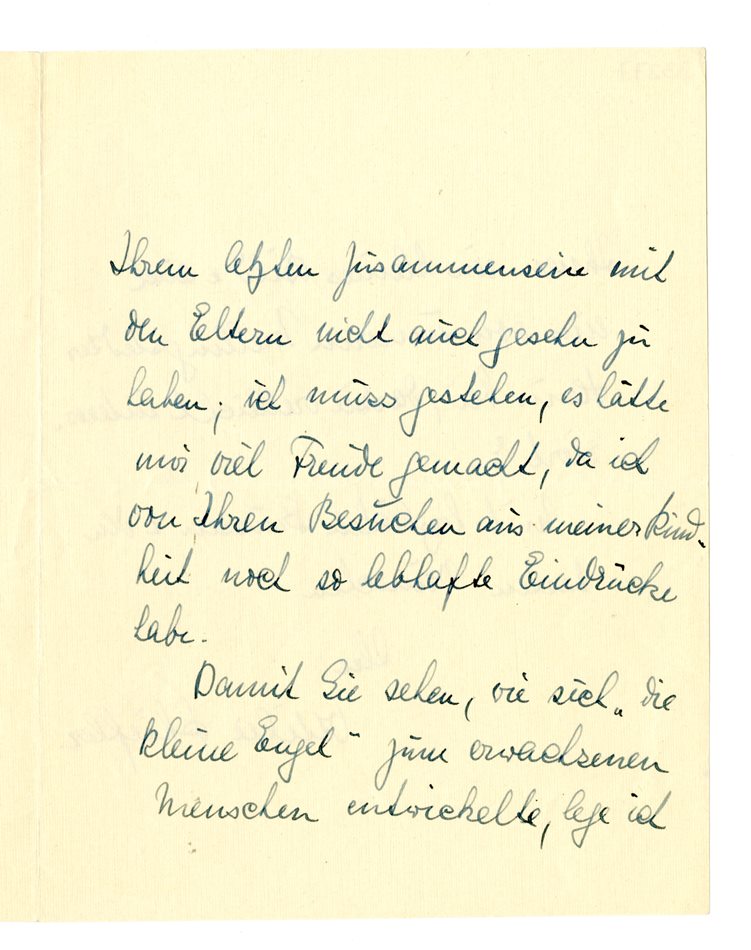 Ihrem letzten Zusammensein mit
den Eltern nicht auch gesehn zu
haben; ich muss gestehen, es hätte
mir viel Freude gemacht, da ich
von Ihren Besuchen aus meiner Kind-
heit noch so lebhafte Eindrücke
habe.
Damit Sie sehen, wie sich „die
kleine Engel“ zum erwachsenen
Menschen entwickelte, lege ich